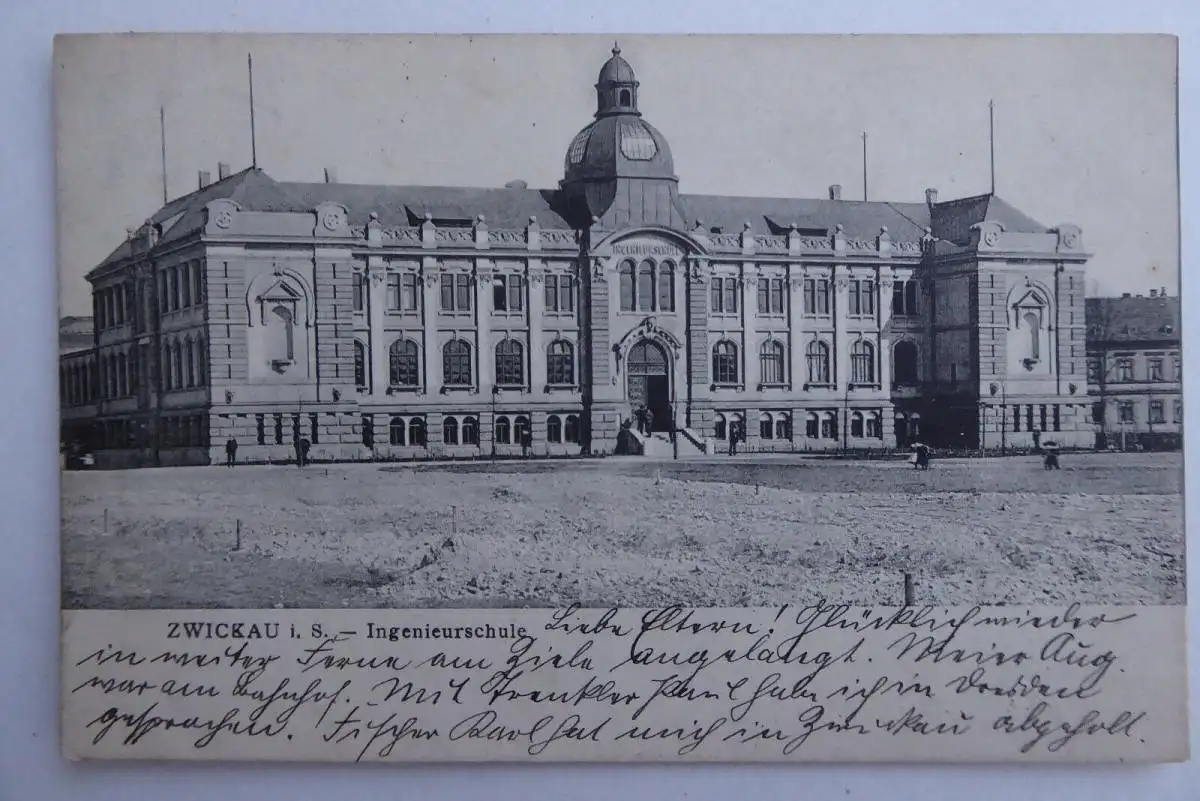 INGENIEURSCHULE
ZWICKAU i. S. — Ingenieurschule Liebe Eltern! Glücklich wieder
in weiter Ferne am Ziele angelangt. Meier Aug.
war am Bahnhof. Mit Trenkler Paul habe ich in Dresden
gesprochen. Fischer Karl hat mich in Zwickau abgeholt.